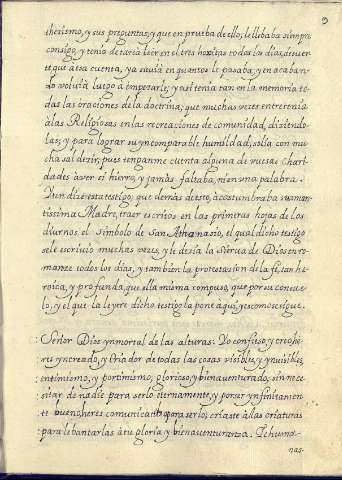 9
thezismo, y sus preguntas, y que en prueba de ello, le llebaba siempre
consigo, y tenia de taria leer en el tres hojitas todos los dias, de suer
te que a esa cuenta, ya sauia en quantos le pasaba, y en acaban-
do voluia luego a empezarle, y asi tenia tan en la memoria to-
das las oraciones de la doctrina, que muchas veces entretenia
a las Religiosas en las recreaciones de comunidad, diziendo
las; y para lograr su yncomparable humildad, solia con mu-
cha sal dezir, pues tenganme cuenta alguna de vuesas Chari-
dades a ver si hierro, y jamas faltaba, ni en una palabra.
Y un dize esta testigo, que demas de esto, acostumbraba su aman-
tissima Madre, traer escritos en las primeras hojas de los
diurnos el Simbolo de San Athanasio, el qual dicho testigo
se le escriuio muchas veces, y le dezia la Sierva de Dios en ro-
manze todos los dias, y tambien la protestacion de la fe, tan he-
roica, y profunda, que ella misma compuso, que por su consue-
lo, y el que la leyere dicho testigo la pone aqui, y es como se sigue.
Señor Dios ynmortal de las alturas. Yo confieso, y creo, he-
ru yncreado, y Criador de todas las cosas visibles, y ynuisibles,
entimismo, y portimismo, glorioso, y bienauenturado, sin nece-
sitar de nadie para serlo eternamente, y por ser ynfinitamen-
te bueno, heres comunicatibo para serlo, criaste a las criaturas
para lebantarlas a tu gloria, y bienauenturanza. Pe huma-
nas-